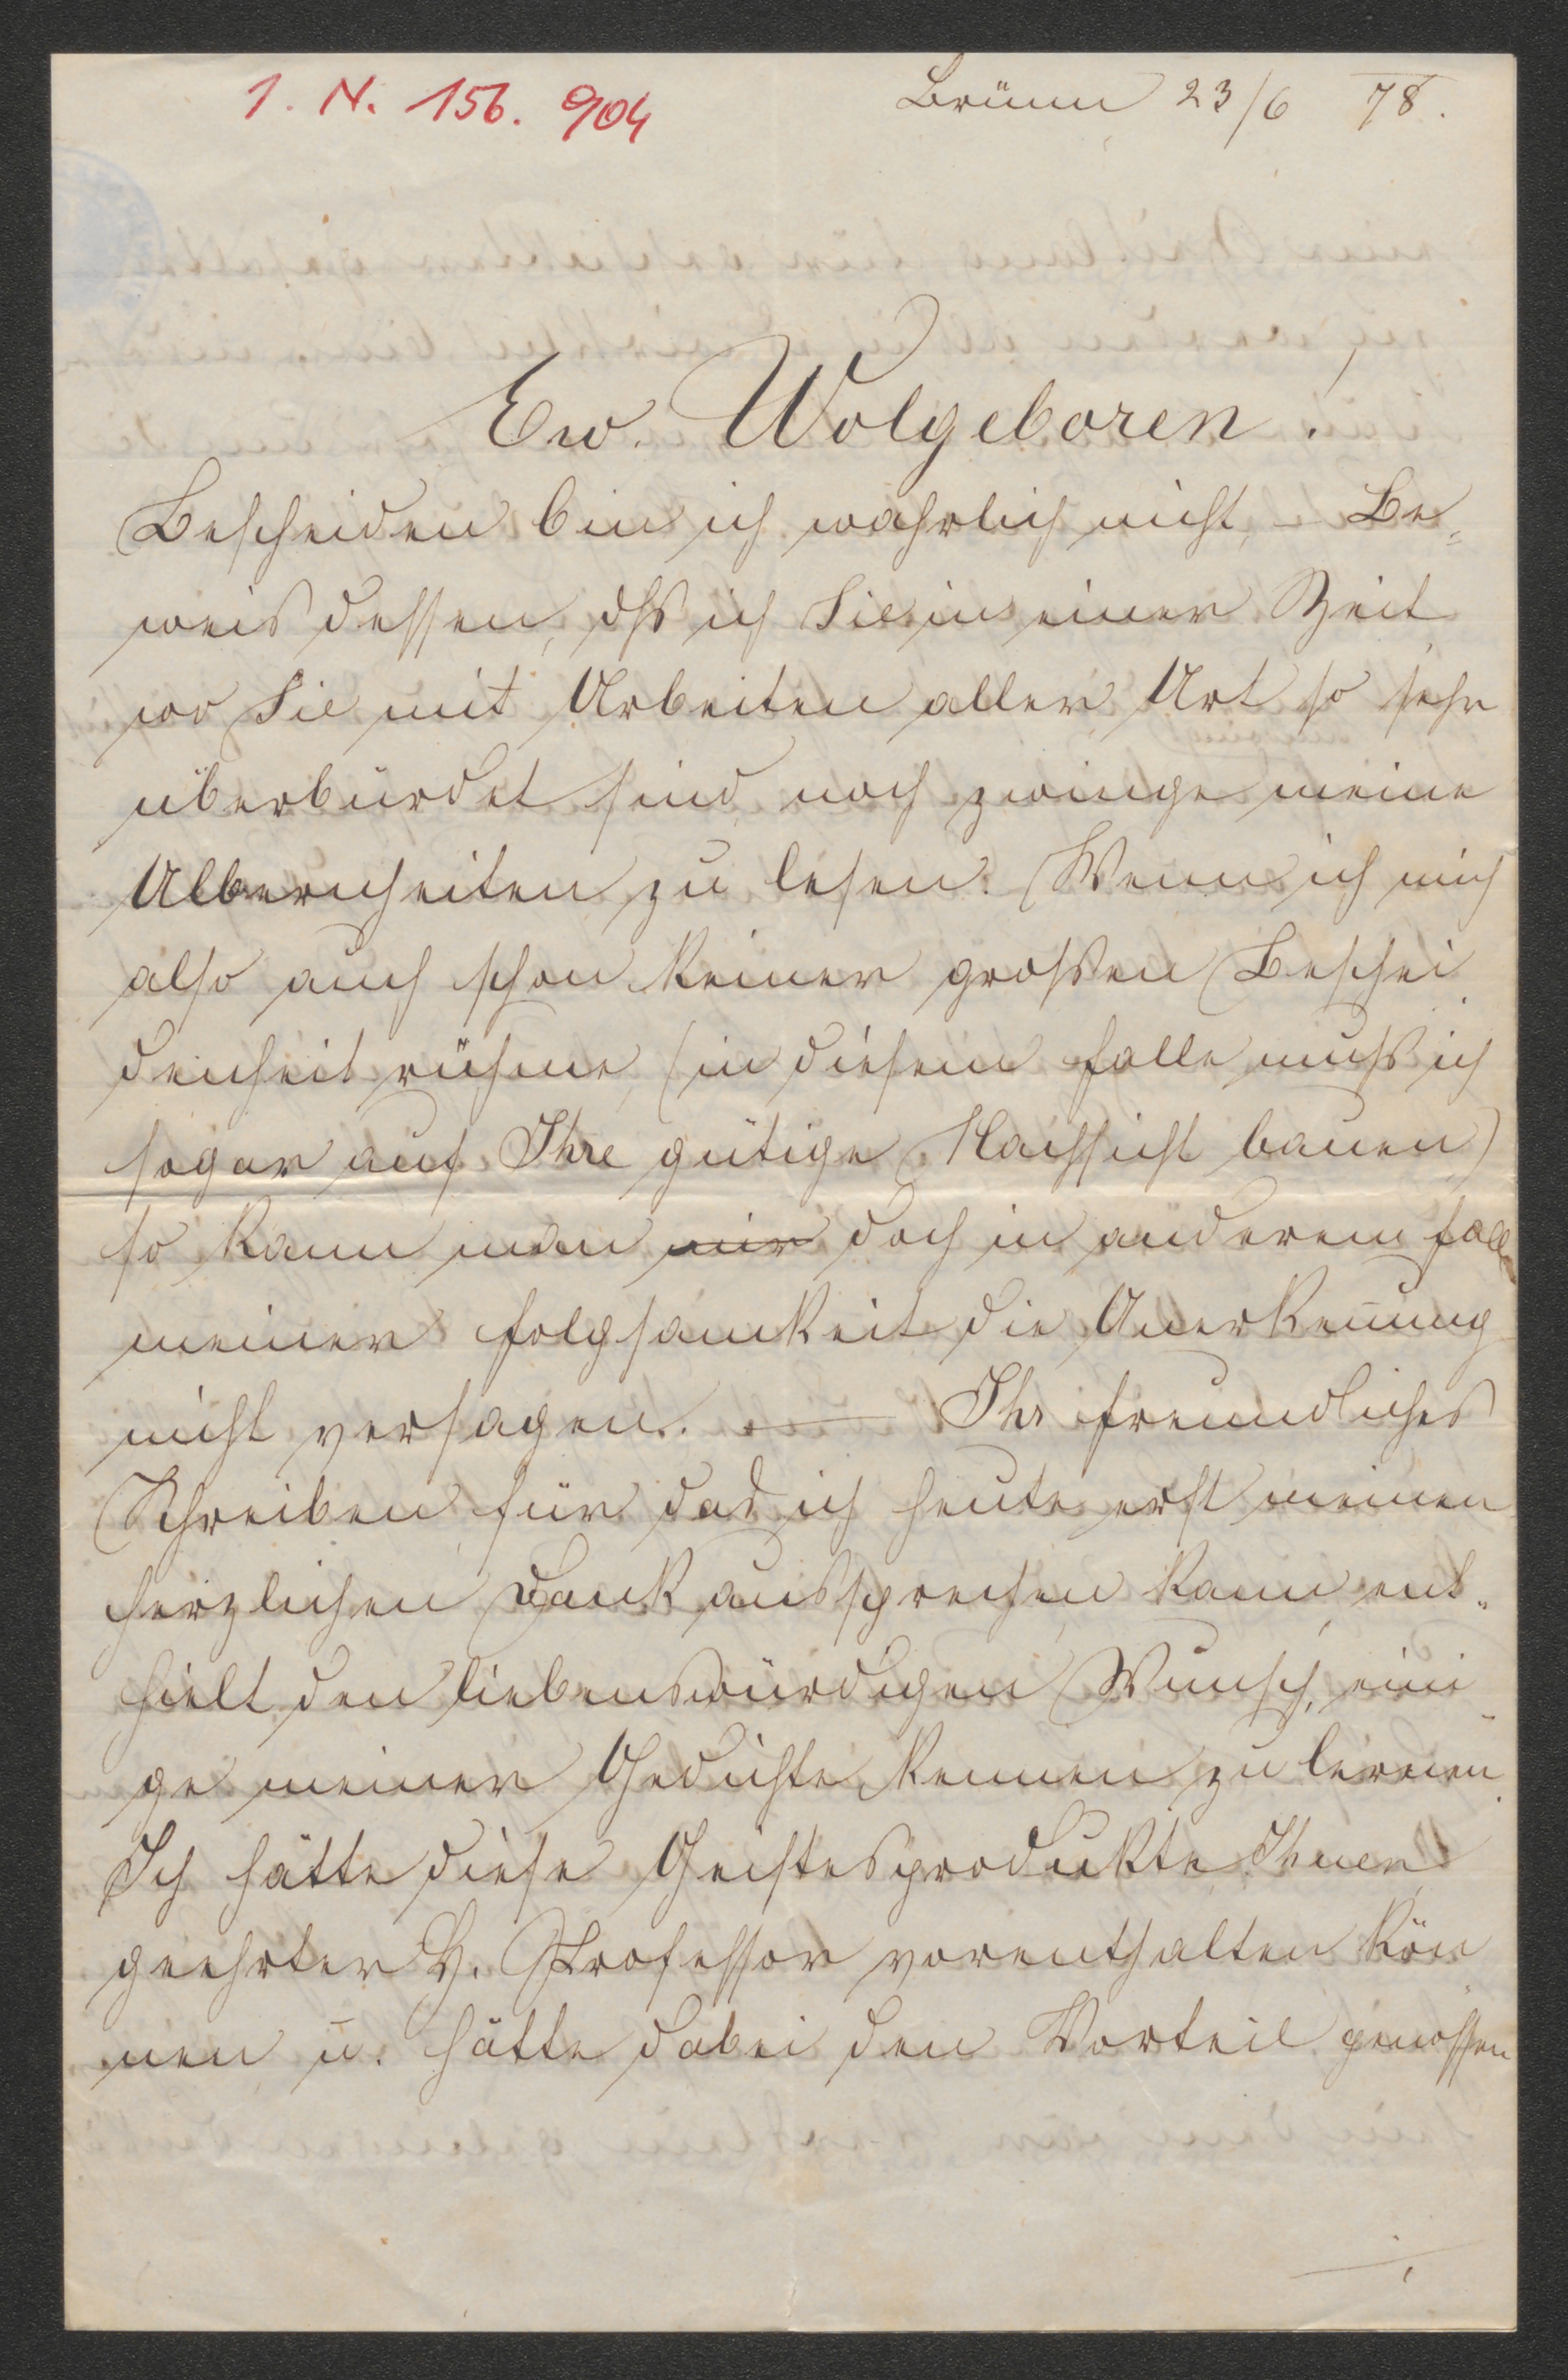 1. N. 156. 904
Brünn 23/6 78.
Ew. Wolgeboren.
Bescheiden bin ich wahrlich nicht, – Be=
weis dessen, dß ich Sie in einer Zeit
wo Sie mit Arbeiten aller Art so sehr
überbürdet sind, noch zwinge meine
Albernheiten zu lesen. Wenn ich mich
also auch schon keiner großen Beschei
denheit rühme, (in diesem Falle muß ich
sogar auf Ihre gütige Nachsicht bauen)
so kann man mir doch in anderem Fall
meiner Folgsamkeit die Anerkenung
nicht versagen. — Ihr freundliches
Schreiben, für das ich heute erst meinen
herzlichen Dank aussprechen kann, ent=
hielt den liebenswürdigen Wunsch, eini=
ge meiner Gedichte kennen zu lernen.
Ich hätte diese Geistesprodukte Ihnen
geehrter H. Professor vorenthalten kön=
nen u. hätte dabei den Vorteil genossen